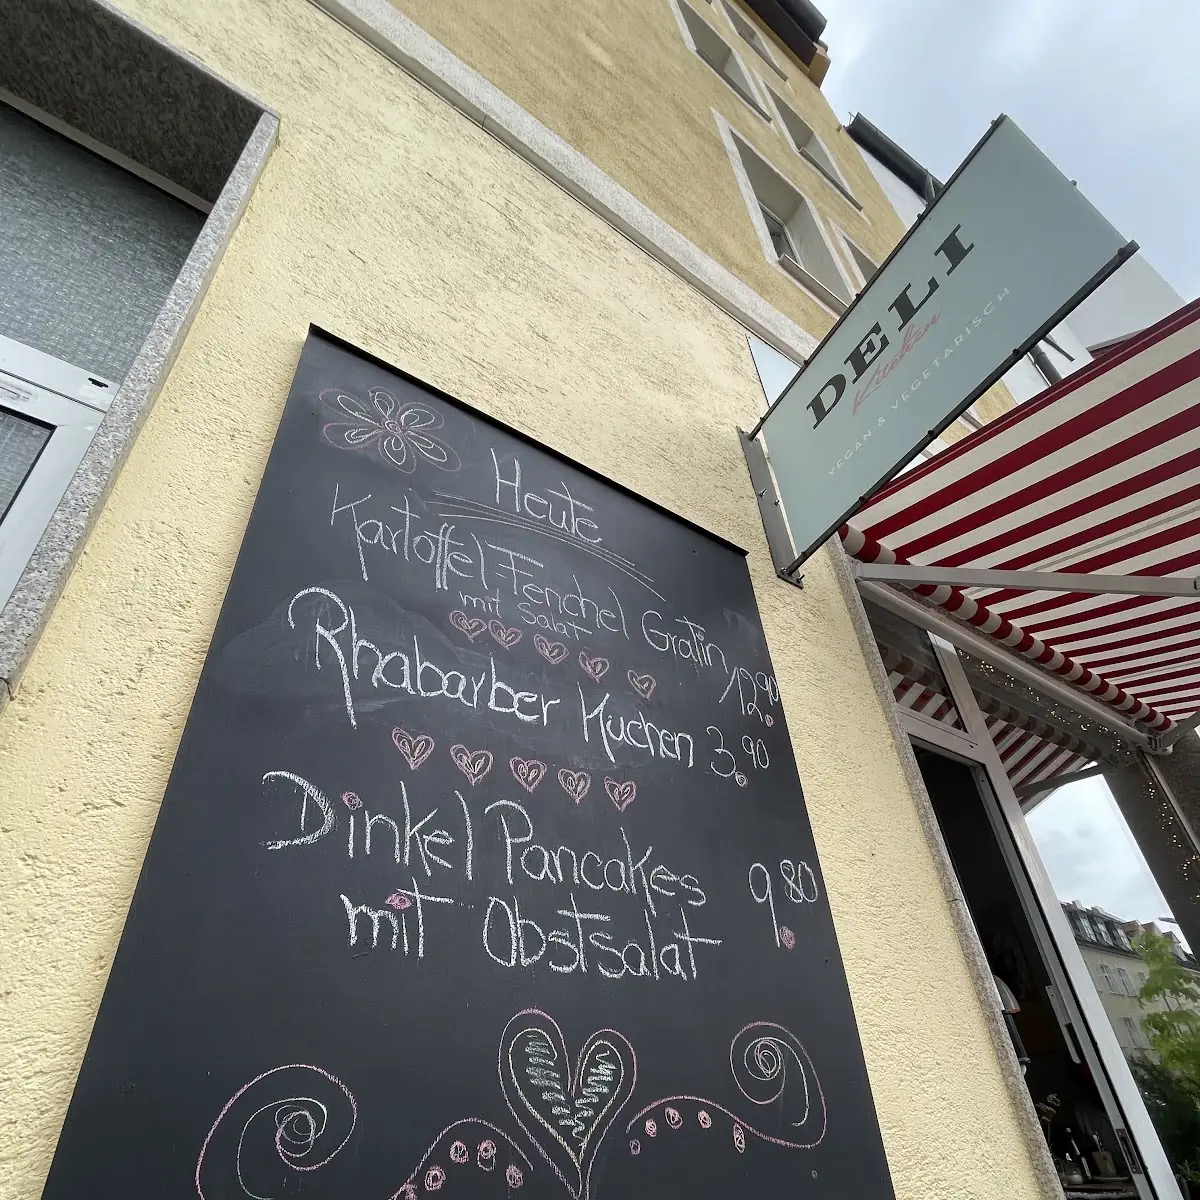 DELI
Kuchen
VEGAN & VEGETARISCH
Heute
Kartoffel-Fenchel Gratin 12.90
mit Salat
Rhabarber Kuchen 3.90
Dinkel Pancakes 9.80
mit Obstsalat